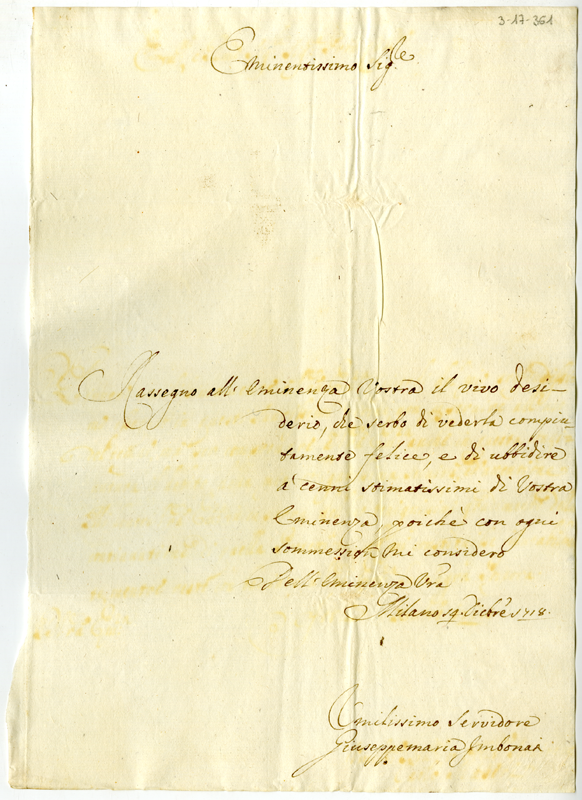 3-17-361
Eminentissimo Sig.re
Rassegno all'Eminenza Vostra il vivo desi-
derio, che serbo di vederla compiu-
tamente felice, e di ubbidire
à cenni stimatissimi di Vostra
Eminenza, poichè con ogni
sommession mi considero
Dell'Eminenza Vra
Milano 14. Dicbre 1718.
Umilissimo Servidore
Giuseppemaria Imbonati